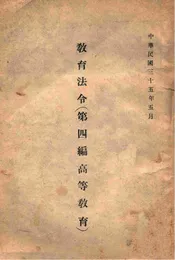 中華民國三十五年五月
教育法令(第四編高等教育)